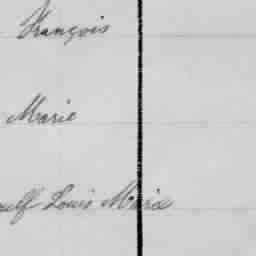 François
Marie
Louis Marie